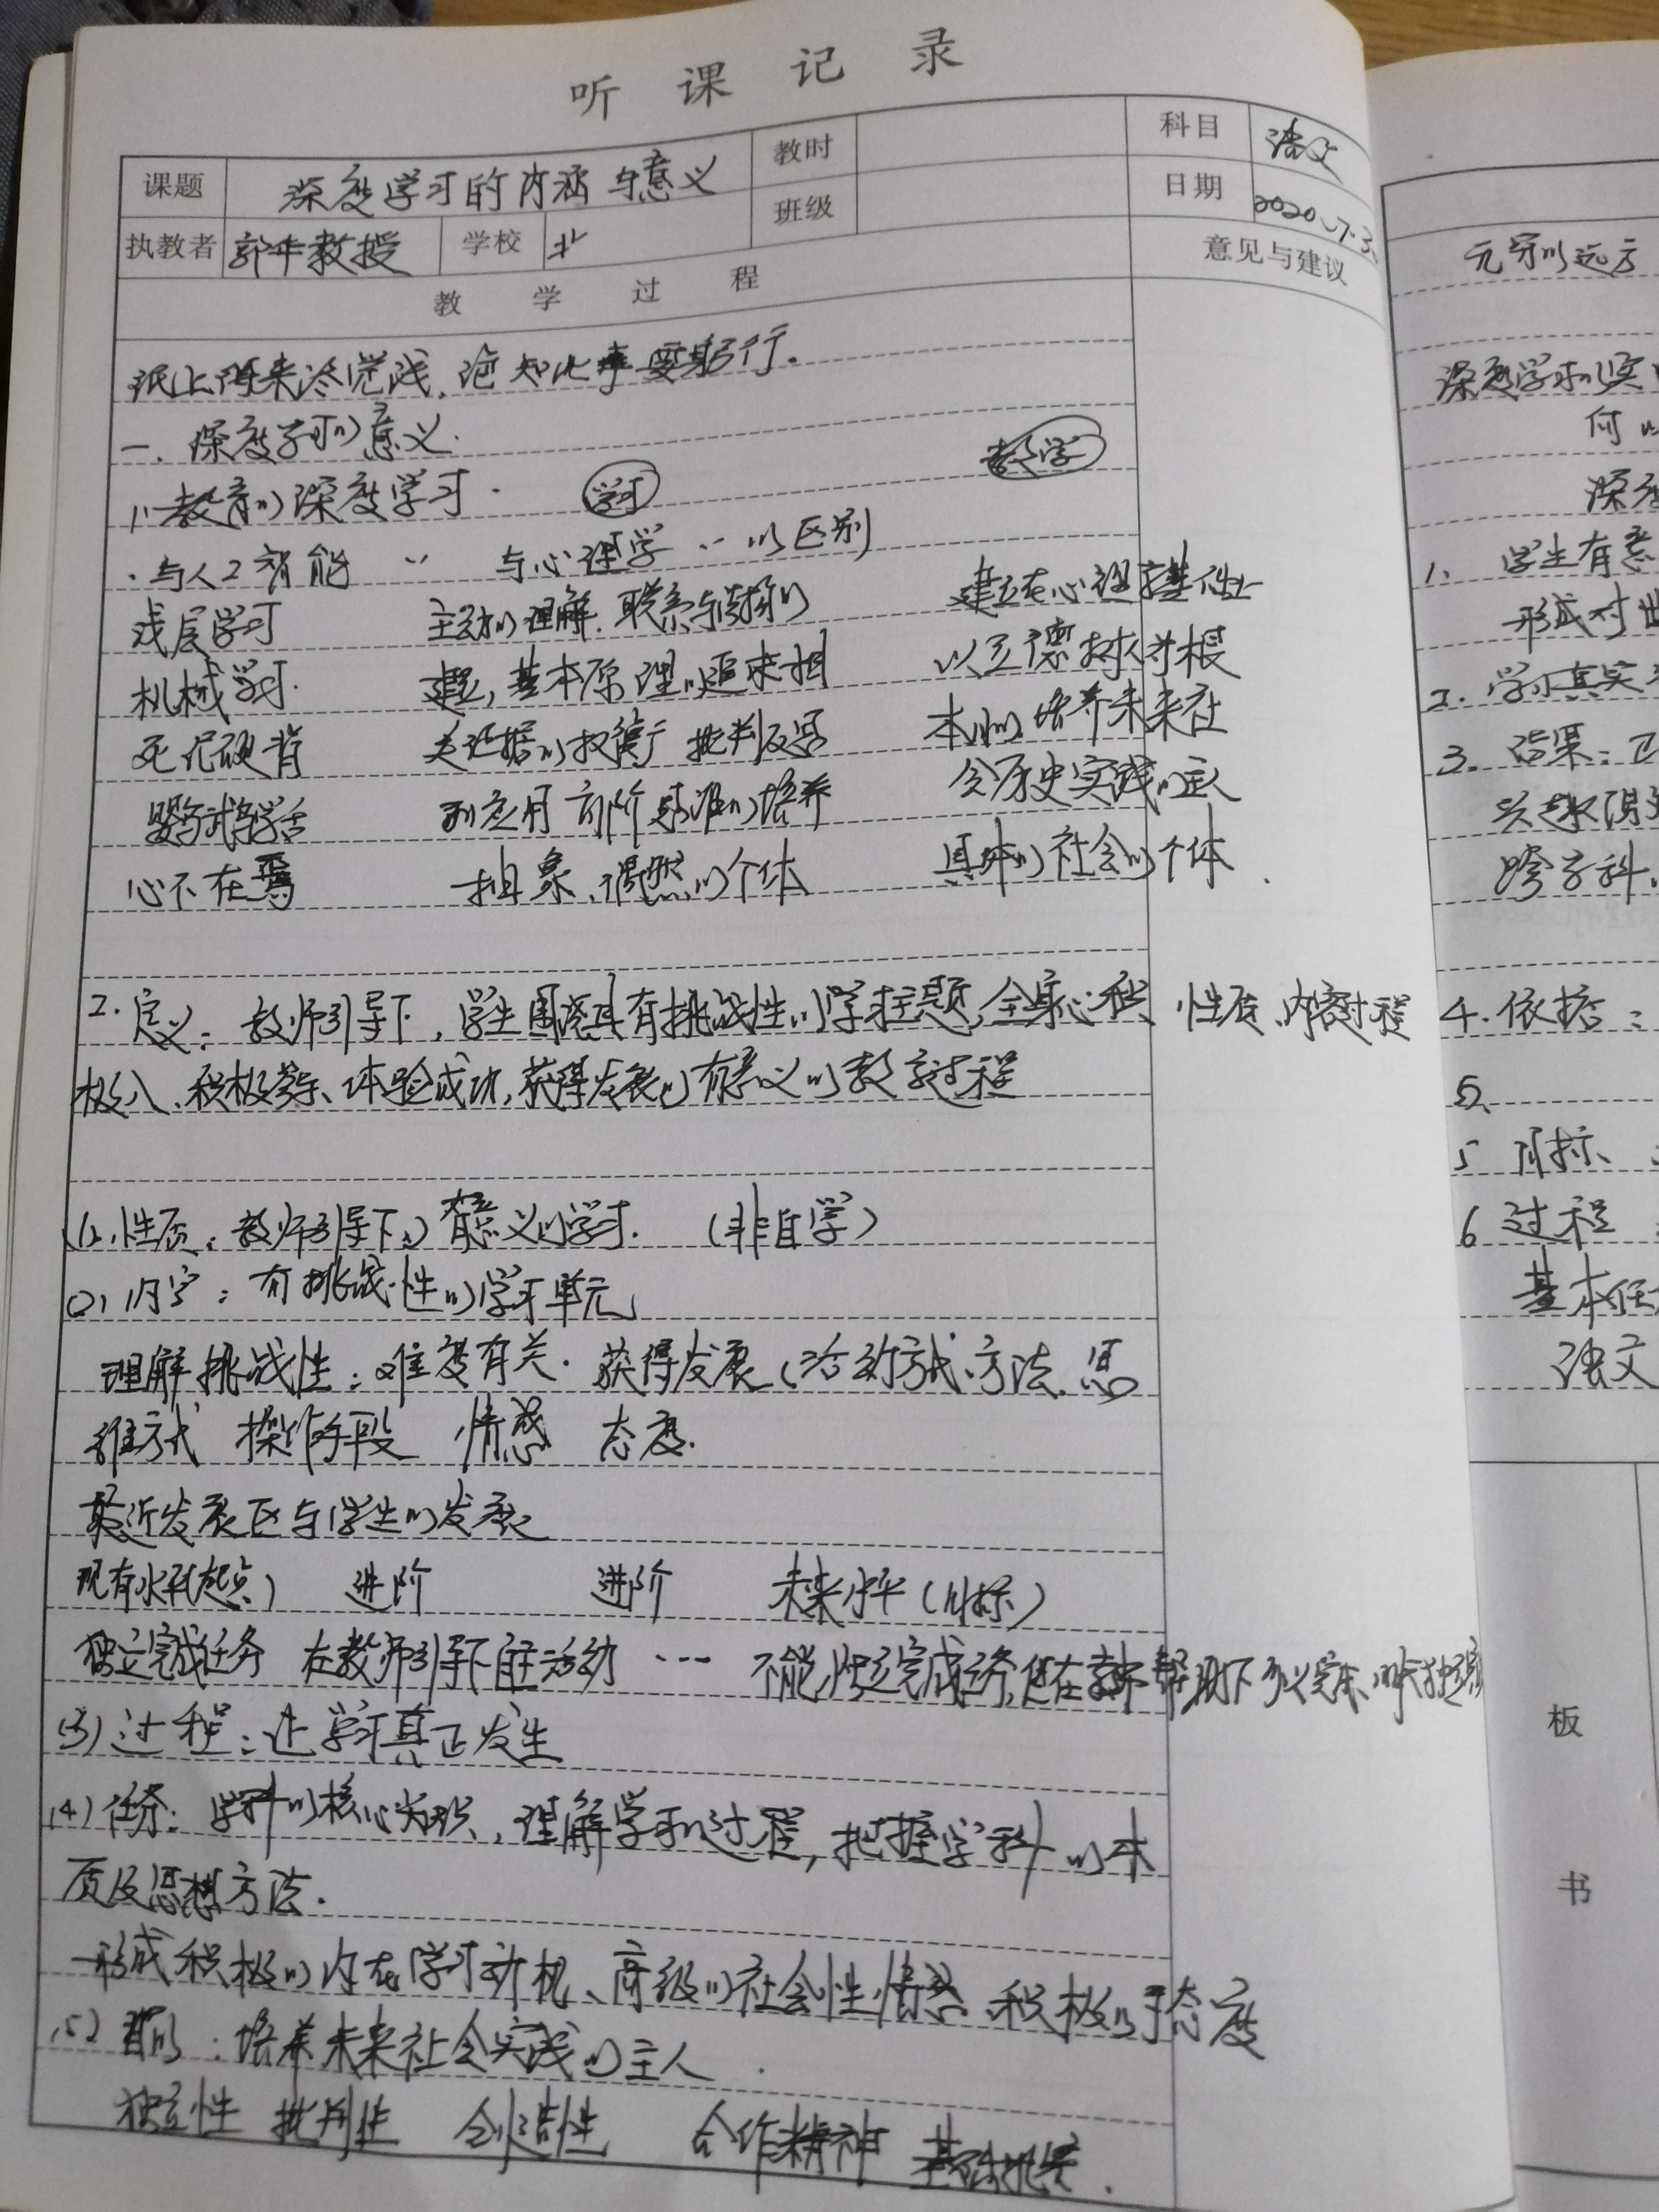 听课记录
课题 深度学习的内涵与意义 教时 科目 语文
执教者 教授 学校 班级 日期 2020.7.3
教学过程 意见与建议
纸上得来终觉浅，绝知此事要躬行。
一.深度学习的意义.
1.教育的深度学习. 学习 教学
·与人工智能 〃 与心理学 〃的区别
浅层学习 主动的理解.联系与 建立在心理学基础上
机械学习. 建立,基本原理的追求相 以立德树人为根
死记硬背 关证据的权衡 批判反思 本的,培养未来社
鹦鹉式学舌 和应用 高阶思维的培养 会历史实践的主人
心不在焉 抽象、偶然的个体 具体的社会的个体.
2.定义：教师引导下，学生围绕具有挑战性的学习主题,全身心积 性质、内容过程
极 、积极参与、体验成功,获得发展的有意义的教学过程
(1).性质：教师引导下的有意义的学习. (非自学)
(2).内容：有挑战性的学习单元
理解挑战性：难度有关. 获得发展(活动方式、方法、思
维方式 操作手段 情感 态度.
最近发展区与学生的发展
现有水平(起点) 进阶 进阶 未来水平(目标)
独立完成任务 在教师引导下自主活动 … 不能独立完成任务,但在教师帮助下可以完成、
(3)过程：让学习真正发生
(4)任务：学科的核心知识，理解学习的过程，把握学科的本
质及思想方法.
形成积极的内在学习动机、高级的社会性情感、积极的态度
(5)目的：培养未来社会实践的主人.
独立性 批判性 创造性 合作精神 基础扎实.
元穿的远方
深度学习的实
何以
深度
1. 学生有意
形式对
2. 学习真实
3. 结果：
兴趣
跨学科、
4.依据：
5、
5 目标、
6 过程
基本任
语文
板
书